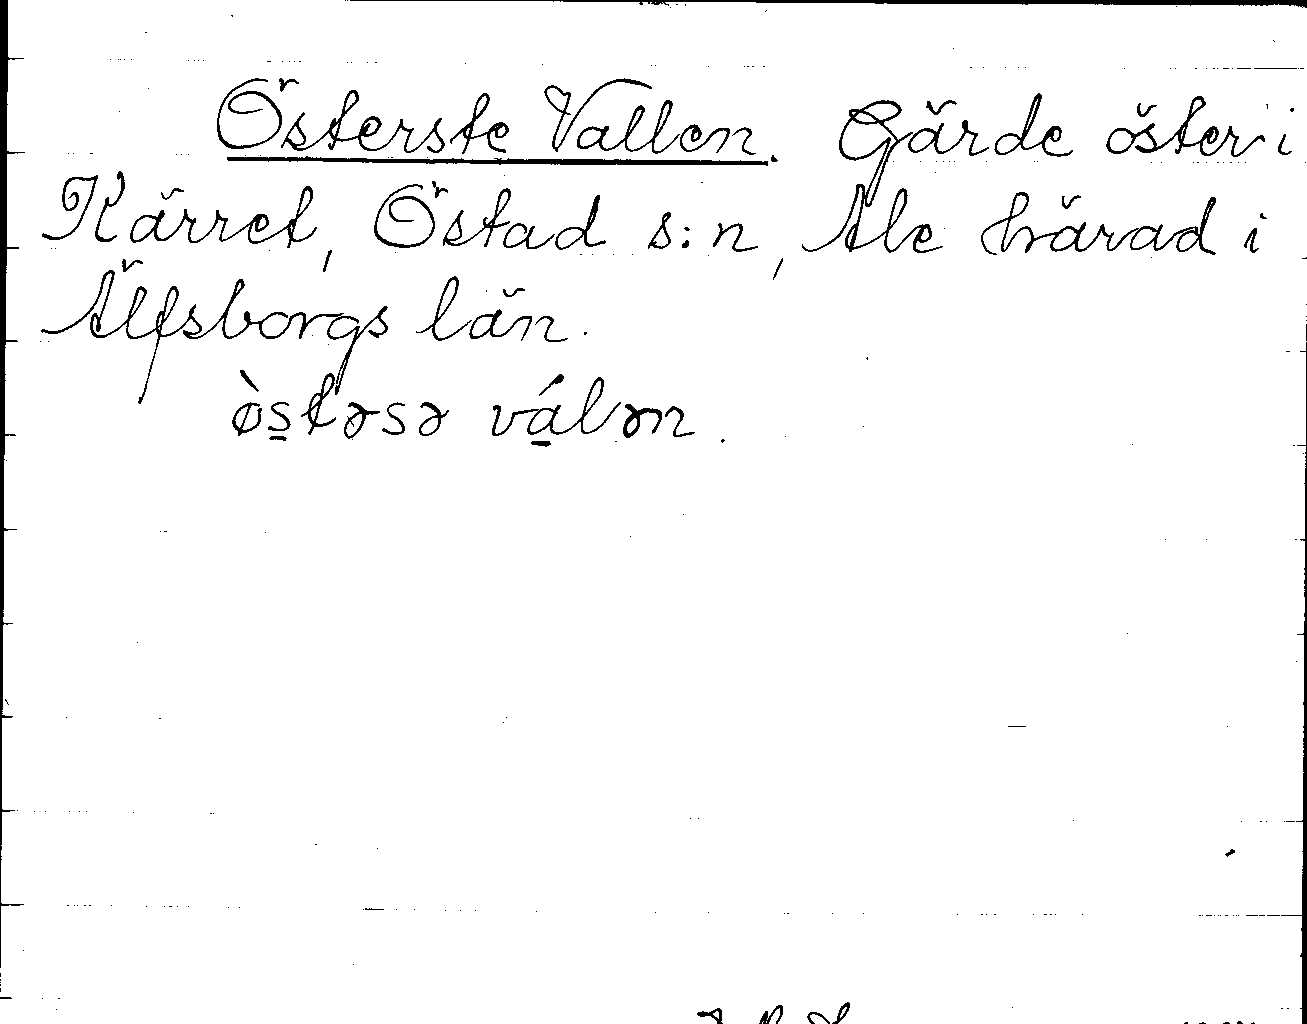 Österste Vallen. Gärde öster i
Kärret, Östad s:n, Ale härad i
Älfsborgs län.
ø̀s̲təsə vá̲lən.